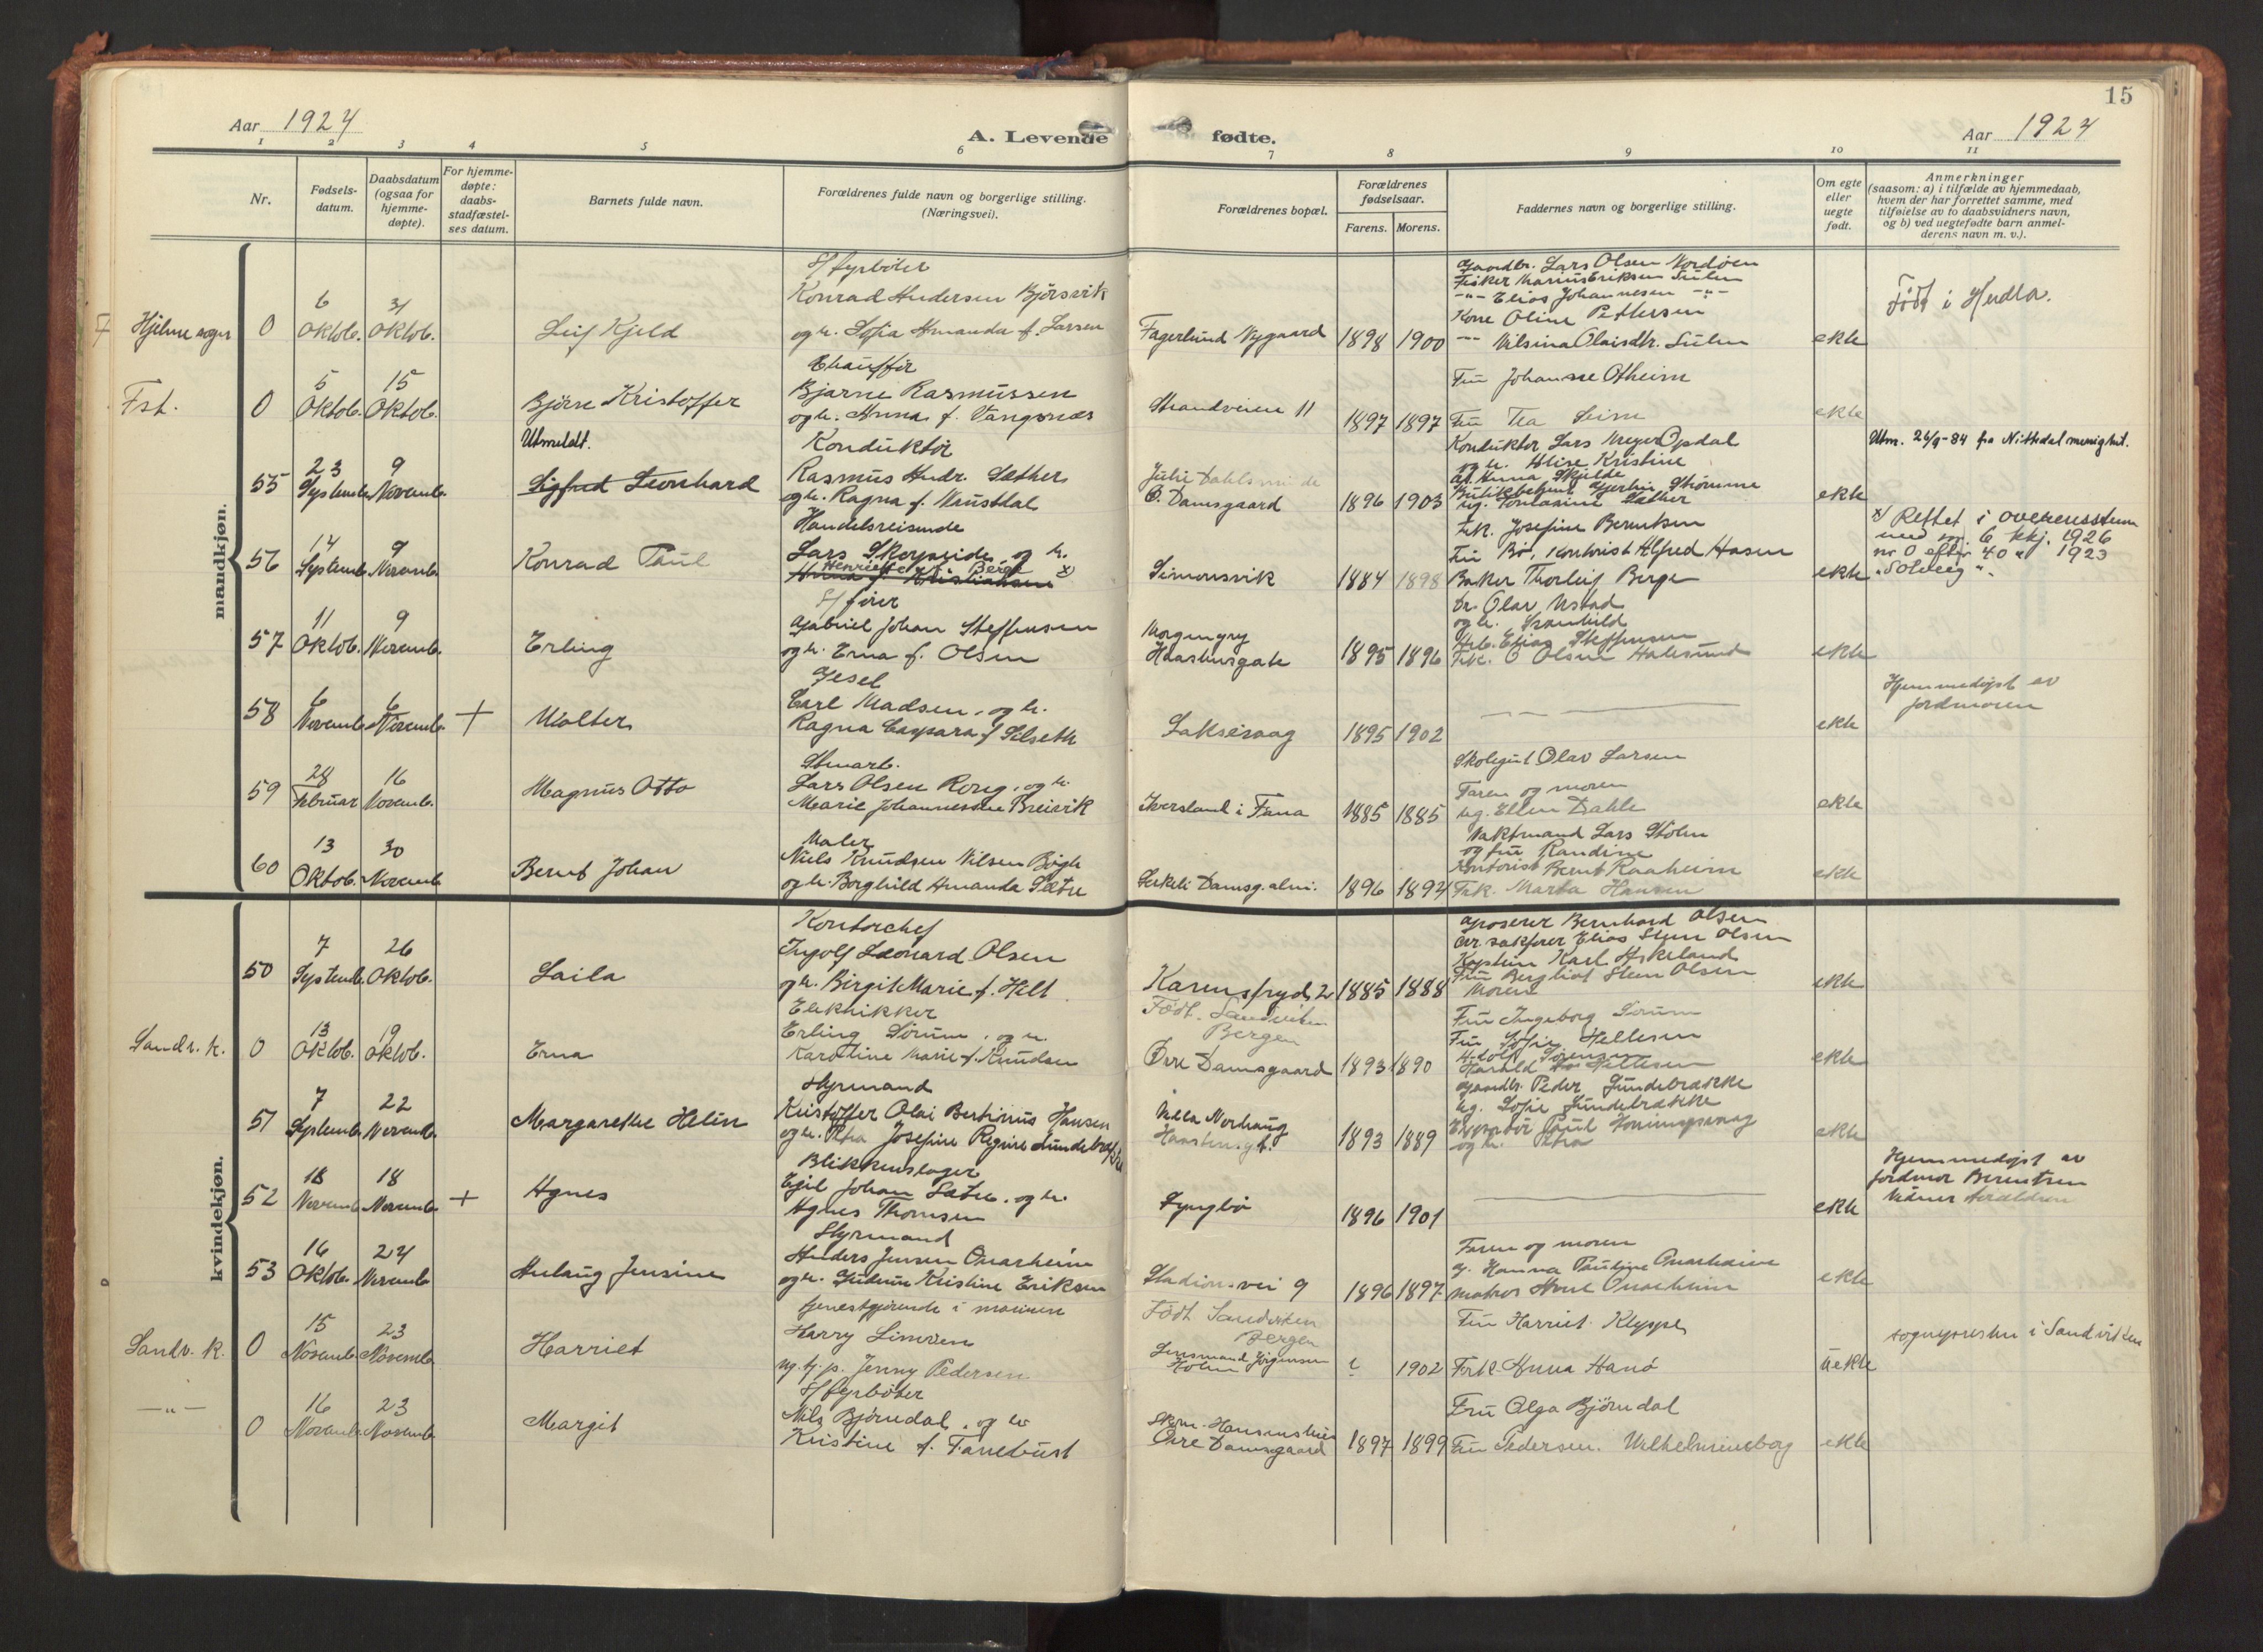 15
Aar 1924
A. Levende fødte.
Aar 1924
1 2 3 4 5 6 7 8 9 10 11
Nr.
Fødsels-
datum.
Daabsdatum
(ogsaa for
hjemme-
døpte).
For hjemme-
døpte:
daabs-
stadfæstel-
ses datum.
Barnets fulde navn.
Forældrenes fulde navn og borgerlige stilling.
(Næringsvei).
Forældrenes bopæl.
Forældrenes
fødselsaar.
Farens. Morens.
Faddernes navn og borgerlige stilling.
Om egte
eller
uegte
født.
Anmerkninger
(saasom: a) i tilfælde av hjemmedaab,
hvem der har forrettet samme, med
tilføielse av to daabsvidners navn,
og b) ved uegtefødte barn anmel-
derens navn m. v.).
mandkjøn.
Hjelme sogn 0
6 Oktob.
31 Oktob.
Leif Kjeld
S/fyrbøter
Konrad Andersen Bjørsvik
og h. Sofia Amanda f. Larsen
Fagerlund Nygaard
1898 1900
Gaardbr. Lars Olsen Nordøen
Fisker Marius Eriksen Sulen
-"- Elias Johannesen -"-
Kone Oline Pettersen
-"- Nilsina Olaisdtr. Sulen
ekte
Født i Herdla.
Fst. 0
5 Oktob.
15 Oktob.
Bjørn Kristoffer
Chauffør
Bjarne Rasmussen
og h. Anna f. Vangsnes
Strandveien 11
1897 1897
Fru Johanne Otheim
Fru Tea Seim
ekte
55
23 Septemb.
9 Novemb.
Utmeldt.
Sigfred Leonhard
Konduktør
Rasmus Andr. Sæther
og h. Ragna f. Naustdal
Ø. Damsgaard
1896 1903
Konduktør Lars Meyer Opdal
og h. Alise Kristine
ekte
Utm. 26/9-84 fra Nittedal menighet.
56
14 Septemb.
9 Novemb.
Konrad Paul
Handelsreisende
Lars Skorpeide og h.
Henriette Berge x)
Anna f. Kristiansen
Simonsvik
1884 1898
Frk. Josefine Berntsen
Fru Bø, Kontorist Alfred Hasen
Baker Thorleif Berge
ekte
x) Rettet i overensstem
med nr. 6 kkj. 1926
nr 0 efter 40 a 1923
"Solveig"
57
11 Oktob.
9 Novemb.
Erling
S/fører
Gabriel Johan Steffensen
og h. Erna f. Olsen
Morgengry
Haastensgate
1895 1896
Dr. Olav Ustad
og h. Svanhild
Arb. Elias Steffensen
ekte
58
6 Novemb.
6 Novemb. +
Walter
Gesel
Carl Madsen, og h.
Ragna Caspara f Silseth
Laksevaag
1895 1902
ekte
Hjemmedøpt av
jordmoren
59
28 Februar
16 Novemb.
Magnus Otto
Stuert.
Lars Olsen Rong, og h.
Marie Johannessen Breivik
Iversland i Fana
1885 1885
Skolegut Olav Larsen
Faren og moren
ug. Ellen Dahle
ekte
60
13 Oktob.
30 Novemb.
Bernt Johan
Maler
Niels Knudsen Nilsen Bøgh
og h. Borghild Amanda Sætre
1896 1892
Vaktmand Lars Stölen
og fru Randine
Kontorist Bernt Raaheim
Frk. Marta Hansen
ekte
kvindekjøn.
50
7 Septemb.
26 Oktob.
Laila
Kontorchef
Ingolf Leonard Olsen
og h. Birgit Marie f. Hilt
Karensfryds 2
1885 1888
Grosserer Bernhard Olsen
Overretssakfører Elias Steen Olsen
Kaptein Karl Askeland
Fru Bergliot Steen Olsen
Moren
ekte
Sandv. k. 0
13 Oktob.
19 Oktob.
Erna
Elektrikker
Erling Sørum, og h.
Karoline Marie f. Knudsen
Født Sandviken
Bergen
Øvre Damsgaard
1893 1890
Fru Ingeborg Sørum
Fru Sofie Hellesen
Adolf Sørensen
Harald Hellesen
ekte
51
7 Septemb.
22 Novemb.
Margarethe Helen
Styrmand
Kristoffer Olai Bertinius Hansen
og h. Petra Josefine Regine Lundebrække
Villa Norhaug
1893 1889
Gaardbr. Peder Lundebrække
ug. Sofie Lundebrække
og h. Petra
ekte
52
18 Novemb.
18 Novemb. +
Agnes
Blikkenslager
Egil Johan Sætre, og h.
Agnes Thomsen
Lyngbø
1896 1901
ekte
Hjemmedøpt av
jordmor Berentsen
Vidner forældrene
53
16 Oktob.
24 Novemb.
Aslaug Jensine
Styrmand
Anders Jensen Onarheim
og h. Gudrun Kristine Eriksen
Stadionsvei 9
1896 1897
Faren og moren
g. Hanna Pauline Onarheim
matros Arne Onarheim
ekte
Sandv. k. 0
15 Novemb.
23 Novemb.
Harriet
tjenestgjørende i marinen
Harry Simsen
ug. tj. p. Jenny Pedersen
Født Sandviken
Bergen
Lensmand Jørgensen
Holen
1902
Fru Harriet Kleppe
Frk. Anna Hanö
uekte
sognepresten i Sandviken
-"- 0
16 Novemb.
23 Novemb.
Margit
S/fyrbøter
Nils Bjørndal, og h.
Kristine f. Tannebust
Skom. Hansens hus
Øvre Damsgaard
1897 1899
Fru Olga Bjørndal
Fru Pedersen. Vilhelmineborg
ekte